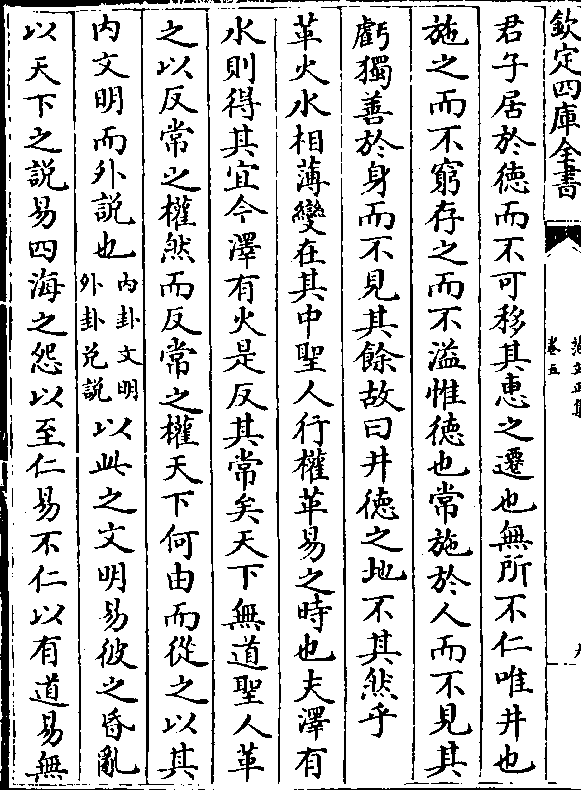 欽定四庫全書
卷五
君子居於徳而不可移其恵之遷也無所不仁唯井也
施之而不窮存之而不溢惟徳也常施於人而不見其
虧獨善於身而不見其餘故曰井徳之地不其然乎
革火水相薄變在其中聖人行權革易之時也夫澤有
水則得其宜今澤有火是反其常矣天下無道聖人革
之以反常之權然而反常之權天下何由而從之以其
内文明而外説也内卦文明外卦兊説以此之文明易彼之昏亂
以天下之説易四海之怨以至仁易不仁以有道易無